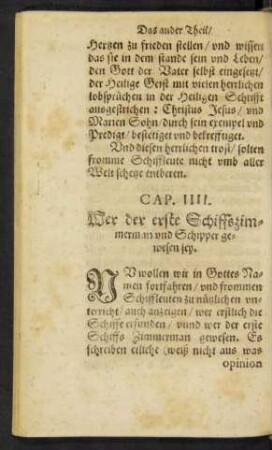 Das ander Theil/
Hertzen zu frieden stellen/ vnd wissen
das sie in dem stande sein vnd Leben/
den Gott der Vater selbst eingesetzt/
der Heilige Geist mit vielen herrlichen
lobsprüchen in der Heiligen Schrifft
ausgestrichen: Christus Jesus/ vnd
Marien Sohn/ durch sein exempel vnd
Predigt/ bestetiget vnd bekrefftiget.
Vnd diesen herrlichen trost/ solten
fromme Schiffleute nicht vmb aller
Welt schetze entberen.
CAP. IIII.
Wer der erste Schiffszim-
merman vnd Schipper ge-
wesen sey.
NV wollen wir in Gottes Na-
men fortfahren/ vnd frommen
Schiffleuten zu nützlichen vn-
terricht/ auch anzeigen/ wer erstlich die
Schiffe erfunden/ vnnd wer der erste
Schiffs Zimmerman gewesen. Es
schreiben etliche (weiß nicht aus was
opinion